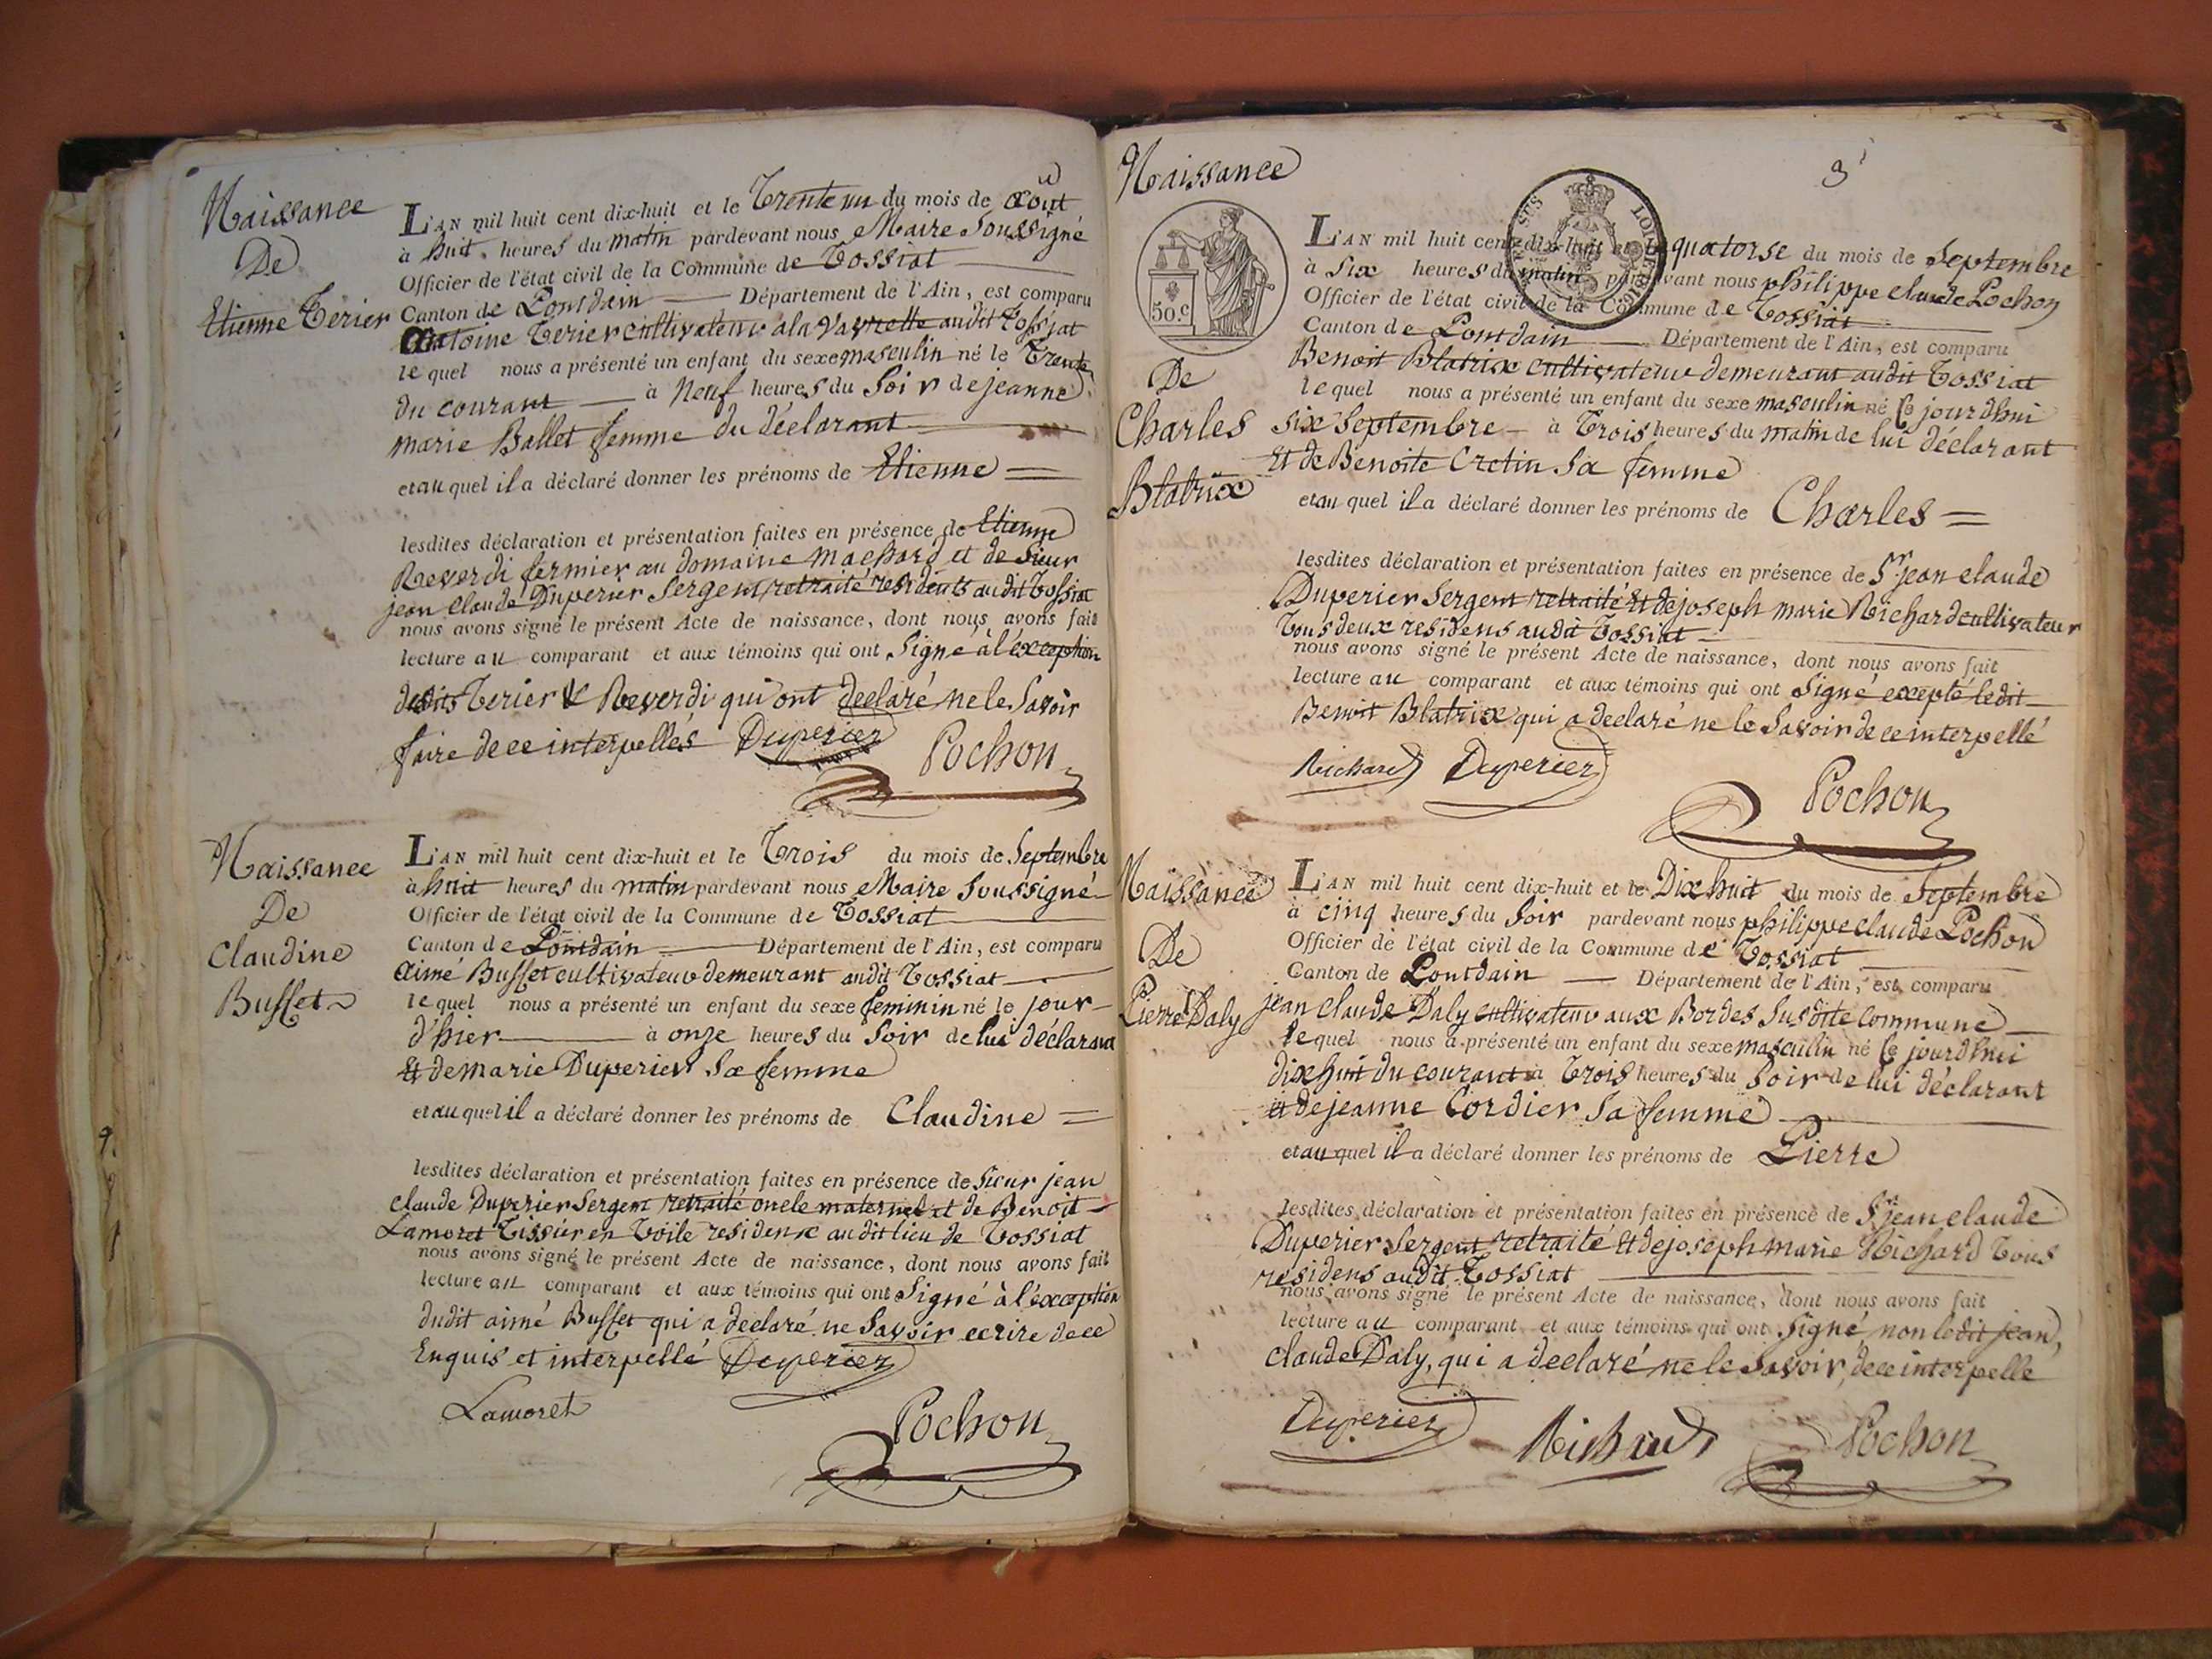 Naissance
De
Etienne Terier
L'AN mil huit cent dix-huit et le Trente un du mois de aout
à huit heures du matin pardevant nous Maire Soussigné
Officier de l'état civil de la Commune de Tossiat
Canton de Pontdain Département de l'Ain, est comparu
antoine Terier cultivateur a la Vavrette audit Tossiat
lequel nous a présenté un enfant du sexe masculin né le Trente
du courant à Neuf heures du Soir de jeanne
marie Ballet femme du déclarant
et au quel il a déclaré donner les prénoms de Etienne =
lesdites déclaration et présentation faites en présence de Etienne
Reverdi fermier au domaine Machard et de Sieur
jean Claude Duperier Sergent retraité residents audit Tossiat
nous avons signé le présent Acte de naissance, dont nous avons fait
lecture au comparant et aux témoins qui ont Signé à l'exception
desdits Terier & Reverdi qui ont declaré ne le Savoir
faire de ce interpellés Duperier Pochon
Naissance
De
Claudine
Busset
L'AN mil huit cent dix-huit et le Trois du mois de Septembre
à huit heures du matin pardevant nous Maire Soussigné
Officier de l'état civil de la Commune de Tossiat
Canton de Pontdain Département de l'Ain, est comparu
aimé Busset cultivateur demeurant audit Tossiat
lequel nous a présenté un enfant du sexe feminin né le jour
d'hier à onze heures du Soir de lui déclarant
Et de marie Duperier Sa femme
et au quel il a déclaré donner les prénoms de Claudine =
lesdites déclaration et présentation faites en présence de Sieur jean
claude Duperier Sergent retraité oncle maternel et de Benoit
Lamoret Tissier en Toile residens audit lieu de Tossiat
nous avons signé le présent Acte de naissance, dont nous avons fait
lecture au comparant et aux témoins qui ont Signé à l'exception
dudit aimé Busset qui a declaré ne Savoir ecrire de ce
Enquis et interpellé Duperier
Lamoret
Pochon
Naissance
3
50.c
De
Charles
Blatrix
L'AN mil huit cent dix-huit et le quatorse du mois de Septembre
à Six heures du matin pardevant nous philippe claude Pochon
Officier de l'état civil de la Commune de Tossiat
Canton de Pontdain Département de l'Ain, est comparu
Benoit Blatrix cultivateur demeurant audit Tossiat
lequel nous a présenté un enfant du sexe masculin né ce jourdhui
six Septembre à Trois heures du matin de lui déclarant
Et de Benoite Cretin Sa femme
et au quel il a déclaré donner les prénoms de Charles =
lesdites déclaration et présentation faites en présence de Sr jean claude
Duperier Sergent retraité Et de joseph marie Richard cultivateur
Tous deux residens audit Tossiat
nous avons signé le présent Acte de naissance, dont nous avons fait
lecture au comparant et aux témoins qui ont Signé excepté ledit
Benoit Blatrix qui a declaré ne le Savoir de ce interpellé
Richard Duperier
Pochon
Naissance
De
Pierre Daly
L'AN mil huit cent dix-huit et le Dix huit du mois de Septembre
à cinq heures du Soir pardevant nous philippe claude Pochon
Officier de l'état civil de la Commune de Tossiat
Canton de Pontdain Département de l'Ain, est comparu
jean Claude Daly cultivateur aux Bordes Susdite Commune
lequel nous a présenté un enfant du sexe masculin né ce jourdhui
dix huit du courant à Trois heures du Soir de lui déclarant
et de jeanne Cordier Sa femme
et au quel il a déclaré donner les prénoms de Pierre
lesdites déclaration et présentation faites en présence de Sr jean claude
Duperier Sergent retraité Et de joseph marie Richard Tous
residens audit Tossiat
nous avons signé le présent Acte de naissance, dont nous avons fait
lecture au comparant et aux témoins qui ont Signé non ledit jean
claude Daly, qui a declaré ne le Savoir, de ce interpellé
Duperier Richard Pochon